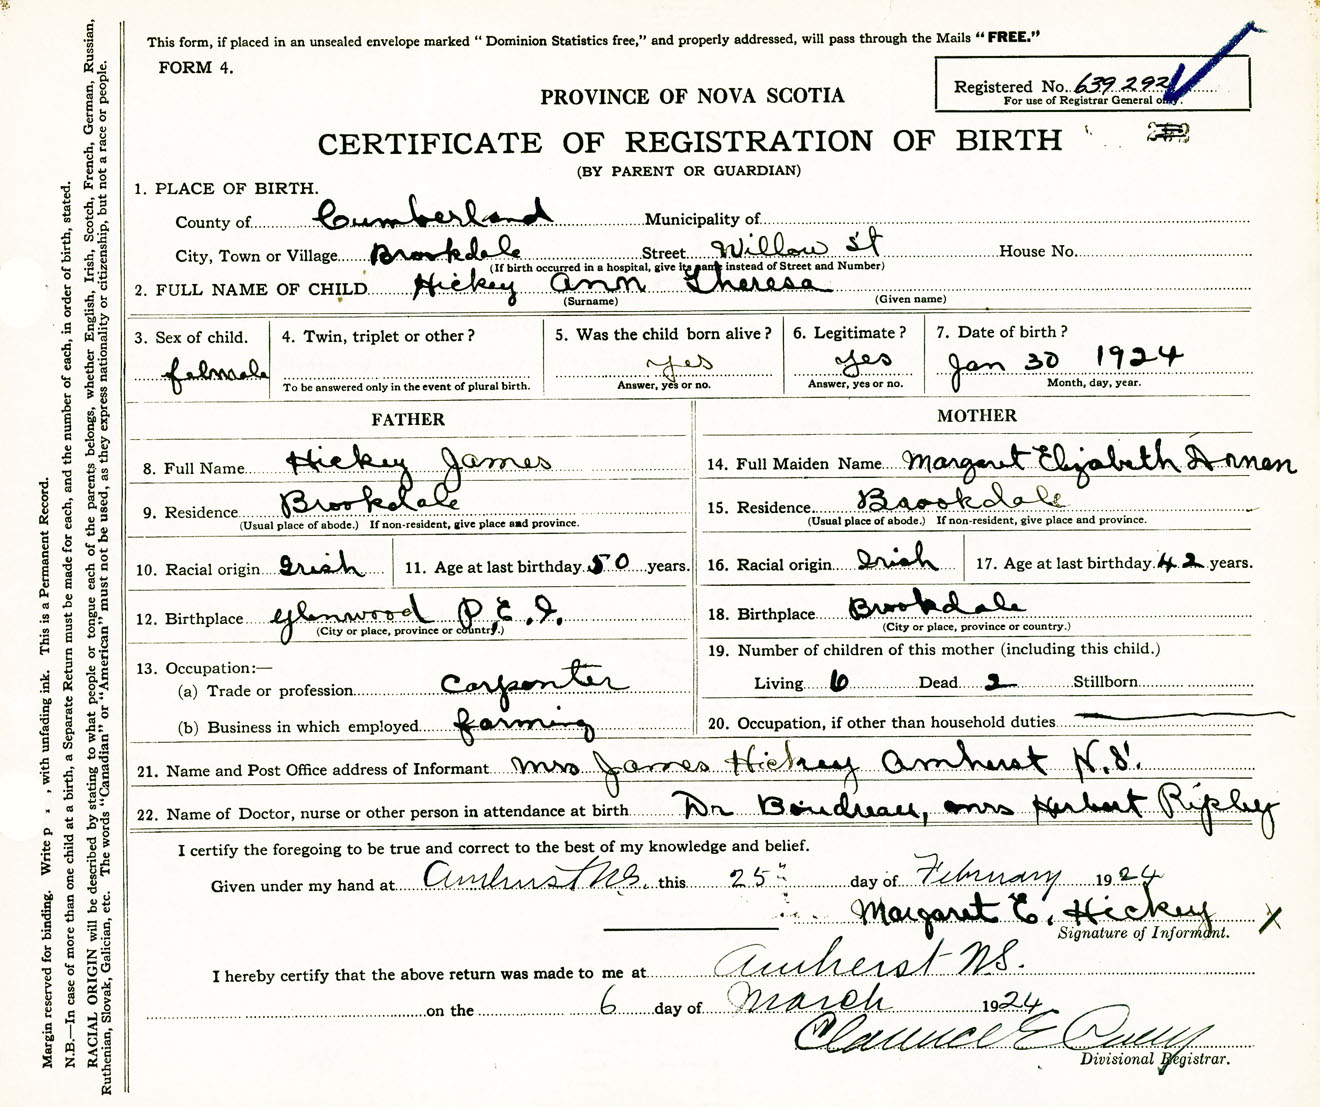 This form, if placed in an unsealed envelope marked “ Dominion Statistics free,” and properly addressed, will pass through the Mails “ FREE.”
FORM 4.
Registered No. 639 292
For use of Registrar General only.
PROVINCE OF NOVA SCOTIA
CERTIFICATE OF REGISTRATION OF BIRTH
(BY PARENT OR GUARDIAN)
1. PLACE OF BIRTH.
County of Cumberland Municipality of
City, Town or Village Brookdale Street Willow St House No.
(If birth occurred in a hospital, give its name instead of Street and Number)
2. FULL NAME OF CHILD Hickey Ann Theresa
(Surname) (Given name)
3. Sex of child. 4. Twin, triplet or other ? 5. Was the child born alive ? 6. Legitimate ? 7. Date of birth ?
felmale yes yes Jan 30 1924
To be answered only in the event of plural birth. Answer, yes or no. Answer, yes or no. Month, day, year.
FATHER MOTHER
8. Full Name Hickey James 14. Full Maiden Name Margaret Elizabeth
9. Residence Brookdale 15. Residence Brookdale
(Usual place of abode.) If non-resident, give place and province. (Usual place of abode.) If non-resident, give place and province.
10. Racial origin Irish 11. Age at last birthday 50 years. 16. Racial origin Irish 17. Age at last birthday 42 years.
12. Birthplace Glenwood P.E.I. 18. Birthplace Brookdale
(City or place, province or country.) (City or place, province or country.)
13. Occupation:— 19. Number of children of this mother (including this child.)
(a) Trade or profession carpenter Living 6 Dead 2 Stillborn
(b) Business in which employed farming 20. Occupation, if other than household duties
21. Name and Post Office address of Informant Mrs James Hickey Amherst N.S.
22. Name of Doctor, nurse or other person in attendance at birth Dr Boudreau, Mrs Herbert Ripley
I certify the foregoing to be true and correct to the best of my knowledge and belief.
Given under my hand at Amherst N.S. this 25th day of February 1924
Margaret E. Hickey X
Signature of Informant.
I hereby certify that the above return was made to me at Amherst N.S.
on the 6 day of March 1924
Clarence E
Divisional Registrar.
Margin reserved for binding. Write p , with unfading ink. This is a Permanent Record.
N.B.—In case of more than one child at a birth, a Separate Return must be made for each, and the number of each, in order of birth, stated.
RACIAL ORIGIN will be described by stating to what people or tongue each of the parents belongs, whether English, Irish, Scotch, French, German, Russian,
Ruthenian, Slovak, Galician, etc. The words “Canadian” or “American” must not be used, as they express nationality or citizenship, but not a race or people.